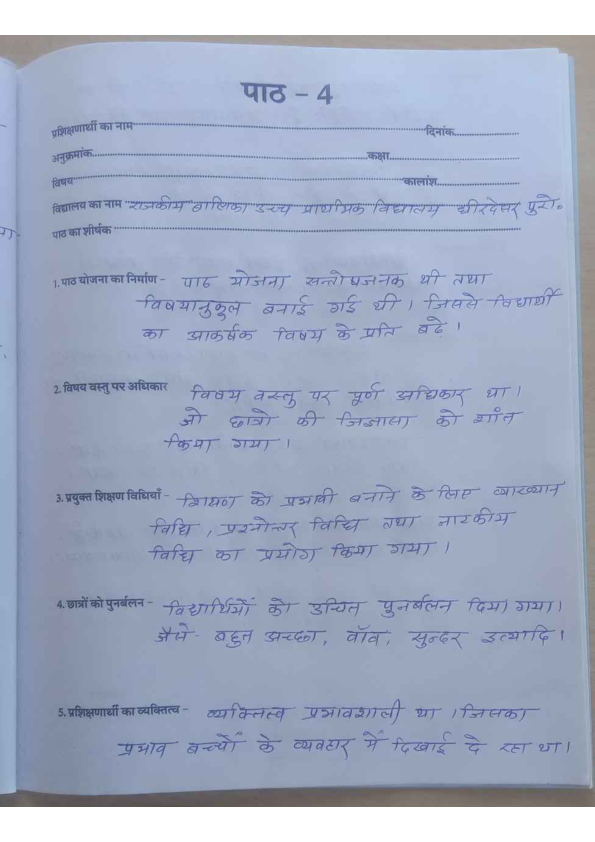 पाठ – 4
प्रशिक्षणार्थी का नाम दिनांक
अनुक्रमांक कक्षा
विषय कालांश
विद्यालय का नाम राजकीय बालिका उच्च प्राथमिक विद्यालय धीरदेसर पुरो॰
पाठ का शीर्षक
1. पाठ योजना का निर्माण – पाठ योजना सन्तोषजनक थी तथा
विषयानुकुल बनाई गई थी। जिससे विधार्थी
का आकर्षक विषय के प्रति बढे।
2. विषय वस्तु पर अधिकार विषय वस्तु पर पूर्ण अधिकार था।
जो छात्रो की जिज्ञासा को शांत
किया गया।
3. प्रयुक्त शिक्षण विधियाँ – शिक्षण को प्रभावी बनाने के लिए व्याख्यान
विधि, प्रश्नोत्तर विधि तथा नाटकीय
विधि का प्रयोग किया गया।
4. छात्रों को पुनर्बलन – विद्यार्थियों को उचित पुनर्बलन दिया गया।
जैसे- बहुत अच्छा, वॉव, सुन्दर इत्यादि।
5. प्रशिक्षणार्थी का व्यक्तित्व – व्यक्तित्व प्रभावशाली था। जिसका
प्रभाव बच्चों के व्यवहार में दिखाई दे रहा था।